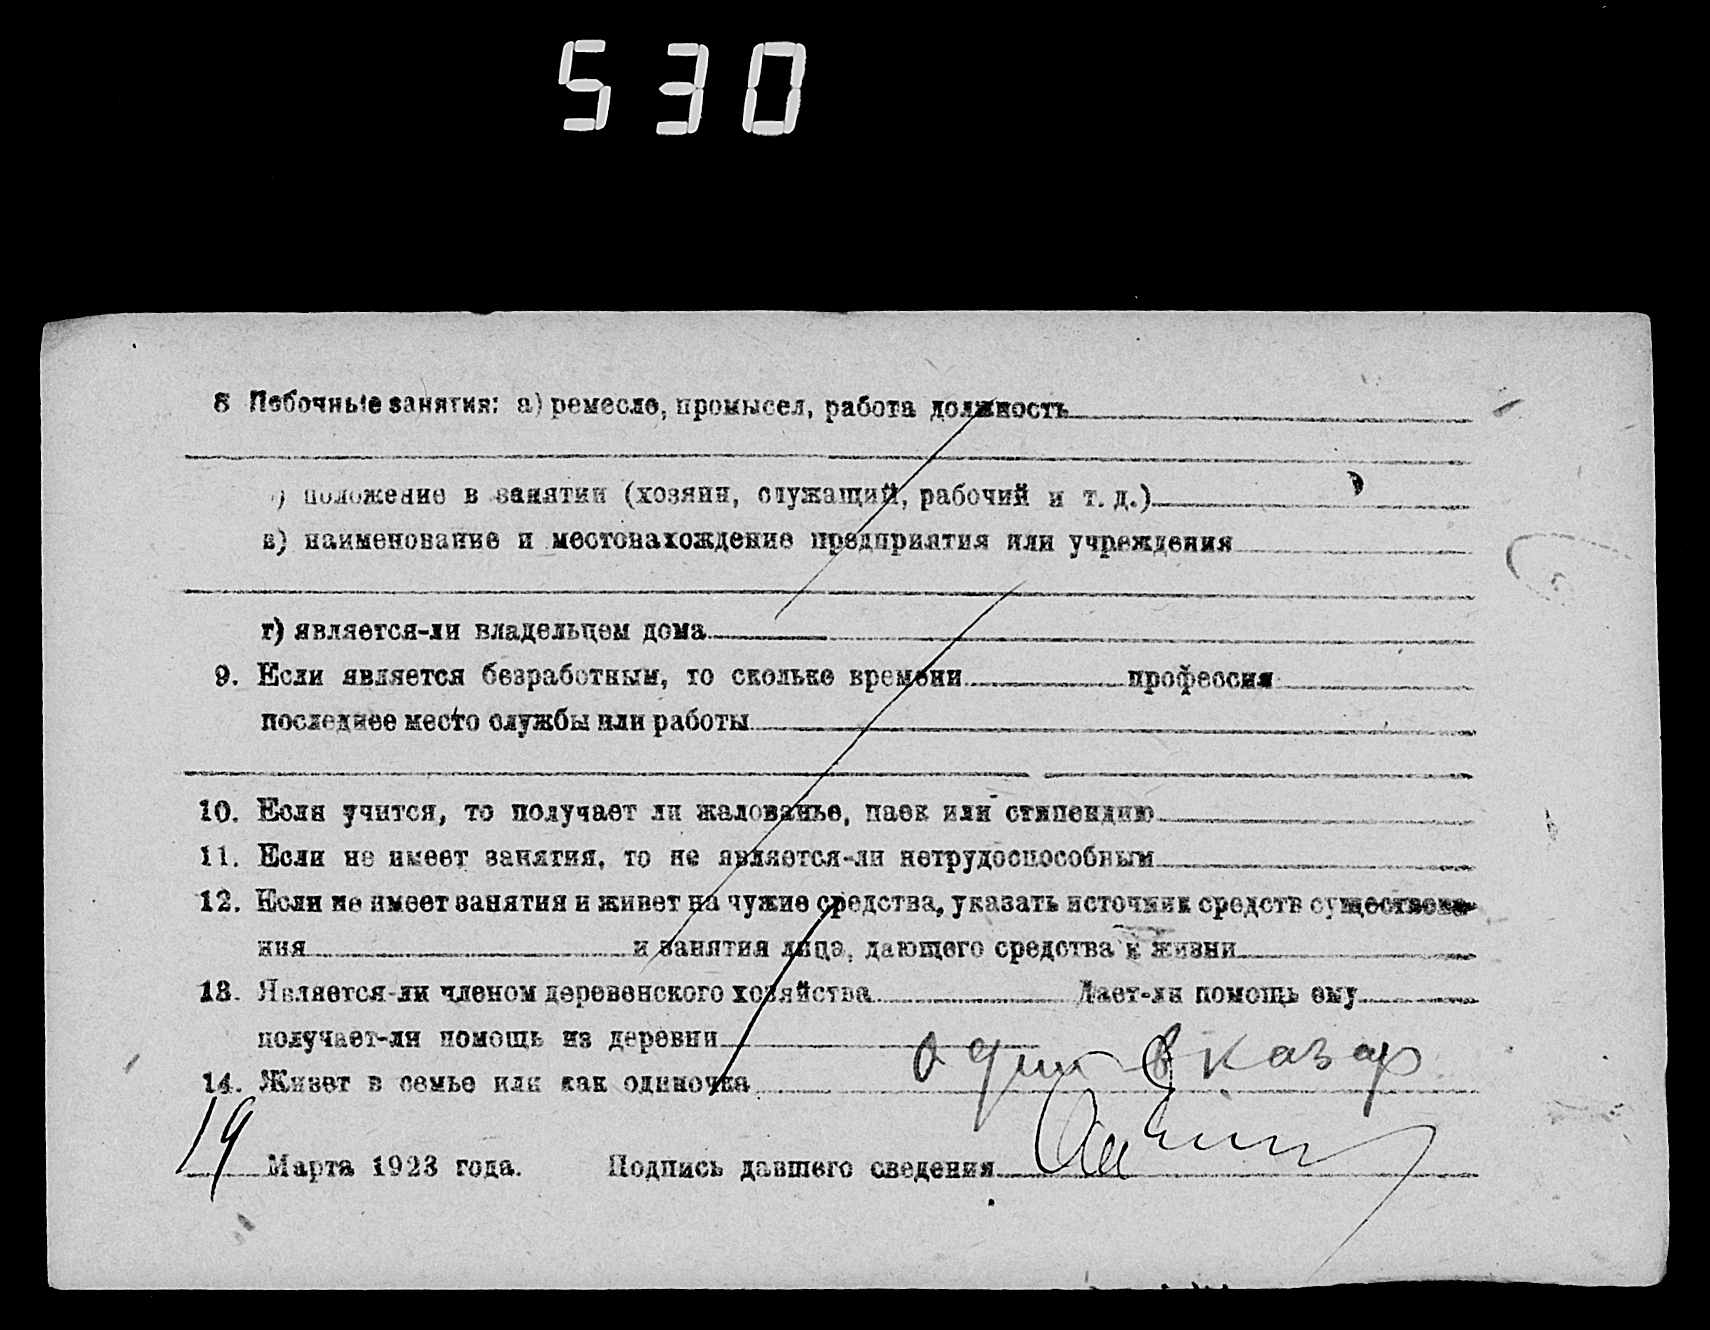 530
8 Побочные занятия: а) ремесло, промысел, работа должность
б) положение в занятии (хозяин, служащий, рабочий и т. д.)
в) наименование и местонахождение предприятия или учреждения
г) является-ли владельцем дома
9. Если является безработным, то сколько времени профессия
последнее место службы или работы
10. Если учится, то получает ли жалованье, паек или стипендию
11. Если не имеет занятия, то не является-ли нетрудоспособным
12. Если не имеет занятия и живет на чужие средства, указать источник средств существова-
ния и занятия лица, дающего средства к жизни
13. Является-ли членом деревенского хозяйства Дает-ли помощь ему
получает-ли помощь из деревни
14. Живет в семье или как одиночка один в казар
19 Марта 1923 года. Подпись давшего сведения